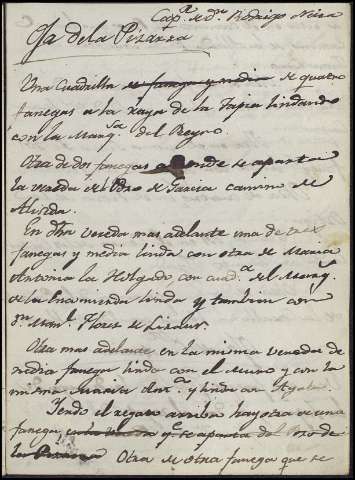 Cap.ª de dn. Rodrigo Niza
Oja de la Pizarra
Una Cuadrilla de fanega y media de quatro
fanegas a la raya de la Tapia lindando
con la Marq.sa del Reyno
Otra de dos fanegas donde se aparta
la vereda de Pedro de Garcia camino de
Aliseda.
En dha vereda mas adelante una de tres
fanegas y media linda con otra de Maria
Antonia la Holgado, con cuad.ª del Marq.
de la Encomienda linda y tambien con
dn. Man.l Flores de Lizaur.
Otra mas adelante en la misma vereda de
media fanega linda con el Muro y con la
misma
Yendo el regato arriba hay otra de una
fanega q.e se aparta del
la Pizarra Otra de otra fanega que se